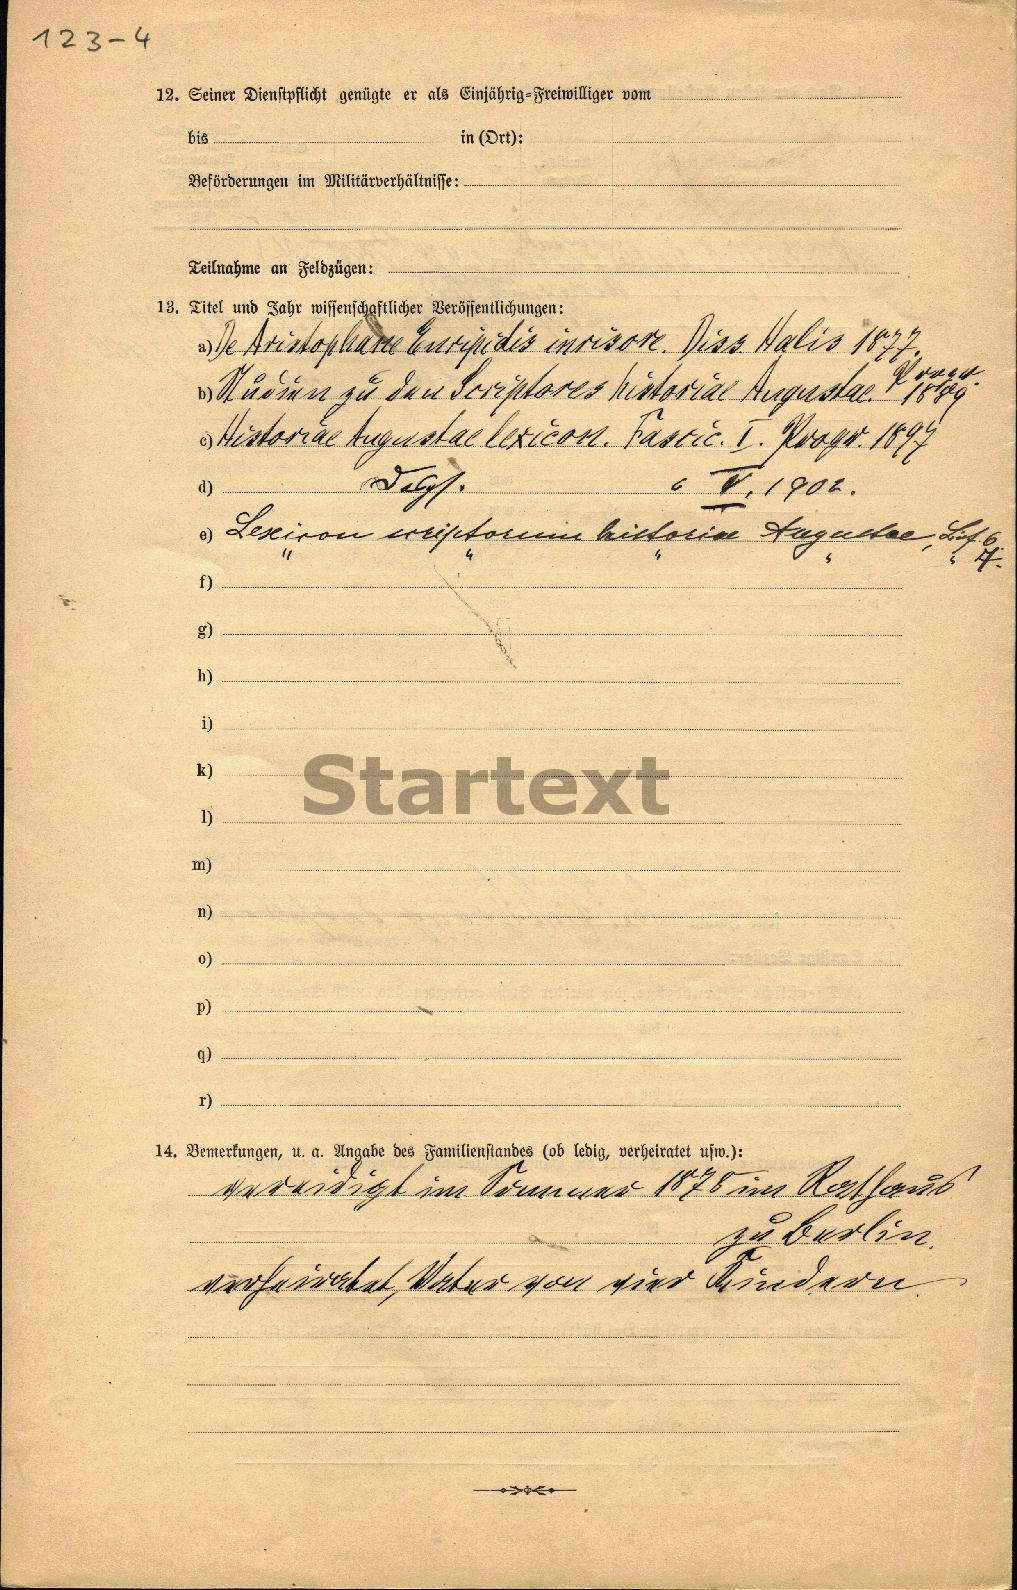 123-4
12. Seiner Dienstpflicht genügte er als Einjährig-Freiwilliger vom
bis in (Ort):
Beförderungen im Militärverhältnisse:
Teilnahme an Feldzügen:
13. Titel und Jahr wissenschaftlicher Veröffentlichungen:
a) De Aristophane Euripidis inrisore. Diss. Halis 1877.
b) Studien zu den Scriptores historiae Augustae. Progr. 1889
c) Historiae Augustae lexicon. Fascic. I. Progr. 1897
d) Dsgl. " V. 1902.
e) Lexicon scriptorum historiae Augustae, Lief 6
" " " " " 7.
f)
g)
h)
i)
k)
Startext
l)
m)
n)
o)
p)
q)
r)
14. Bemerkungen, u. a. Angabe des Familienstandes (ob ledig, verheiratet usw.):
vereidigt im Sommer 1878 im Rathaus
zu Berlin.
verheiratet, Vater von vier Kindern.